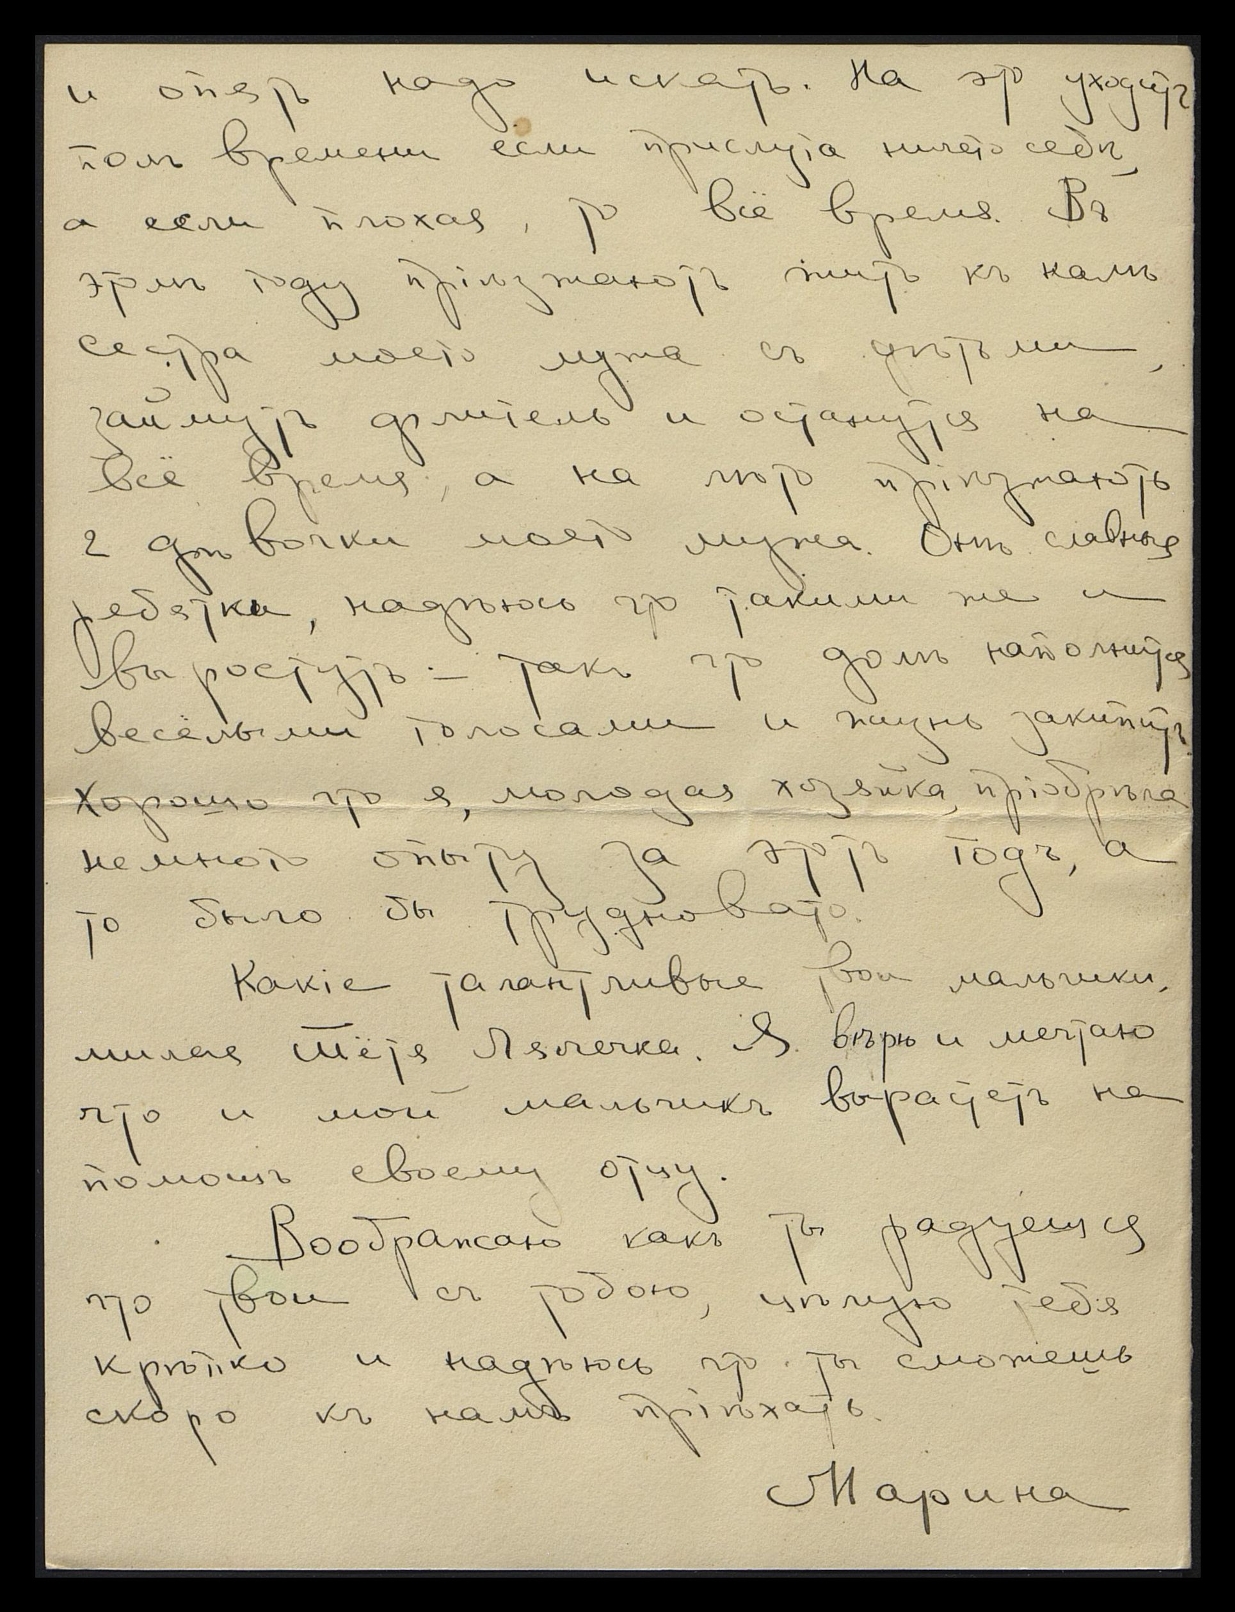 и опять надо искать. На это уходитъ
полъ времени если прислуга ничего себѣ,
а если плохая, то всё время. Въ
этомъ году пріѣзжаютъ жить къ намъ
сестра моего мужа съ дѣтьми,
займутъ флигель и останутся на
всё время, а на лѣто пріѣзжаютъ
2 дѣвочки моего мужа. Онѣ славныя
ребятки, надѣюсь что такими же и
выростутъ – такъ что домъ наполнится
весёлыми голосами и жизнь закипитъ.
Хорошо что я, молодая хозяйка, пріобрѣла
немного опыту за этотъ годъ, а
то было бы трудновато.
Какіе талантливые твои мальчики,
милая Тётя Лялечка. Я вѣрю и мечтаю
что и мой мальчикъ вырастетъ на
помощь своему отцу.
Воображаю какъ ты радуешься
что твои съ тобою, цѣлую тебя
крѣпко и надѣюсь что ты сможешь
скоро къ намъ пріѣхать.
Марина